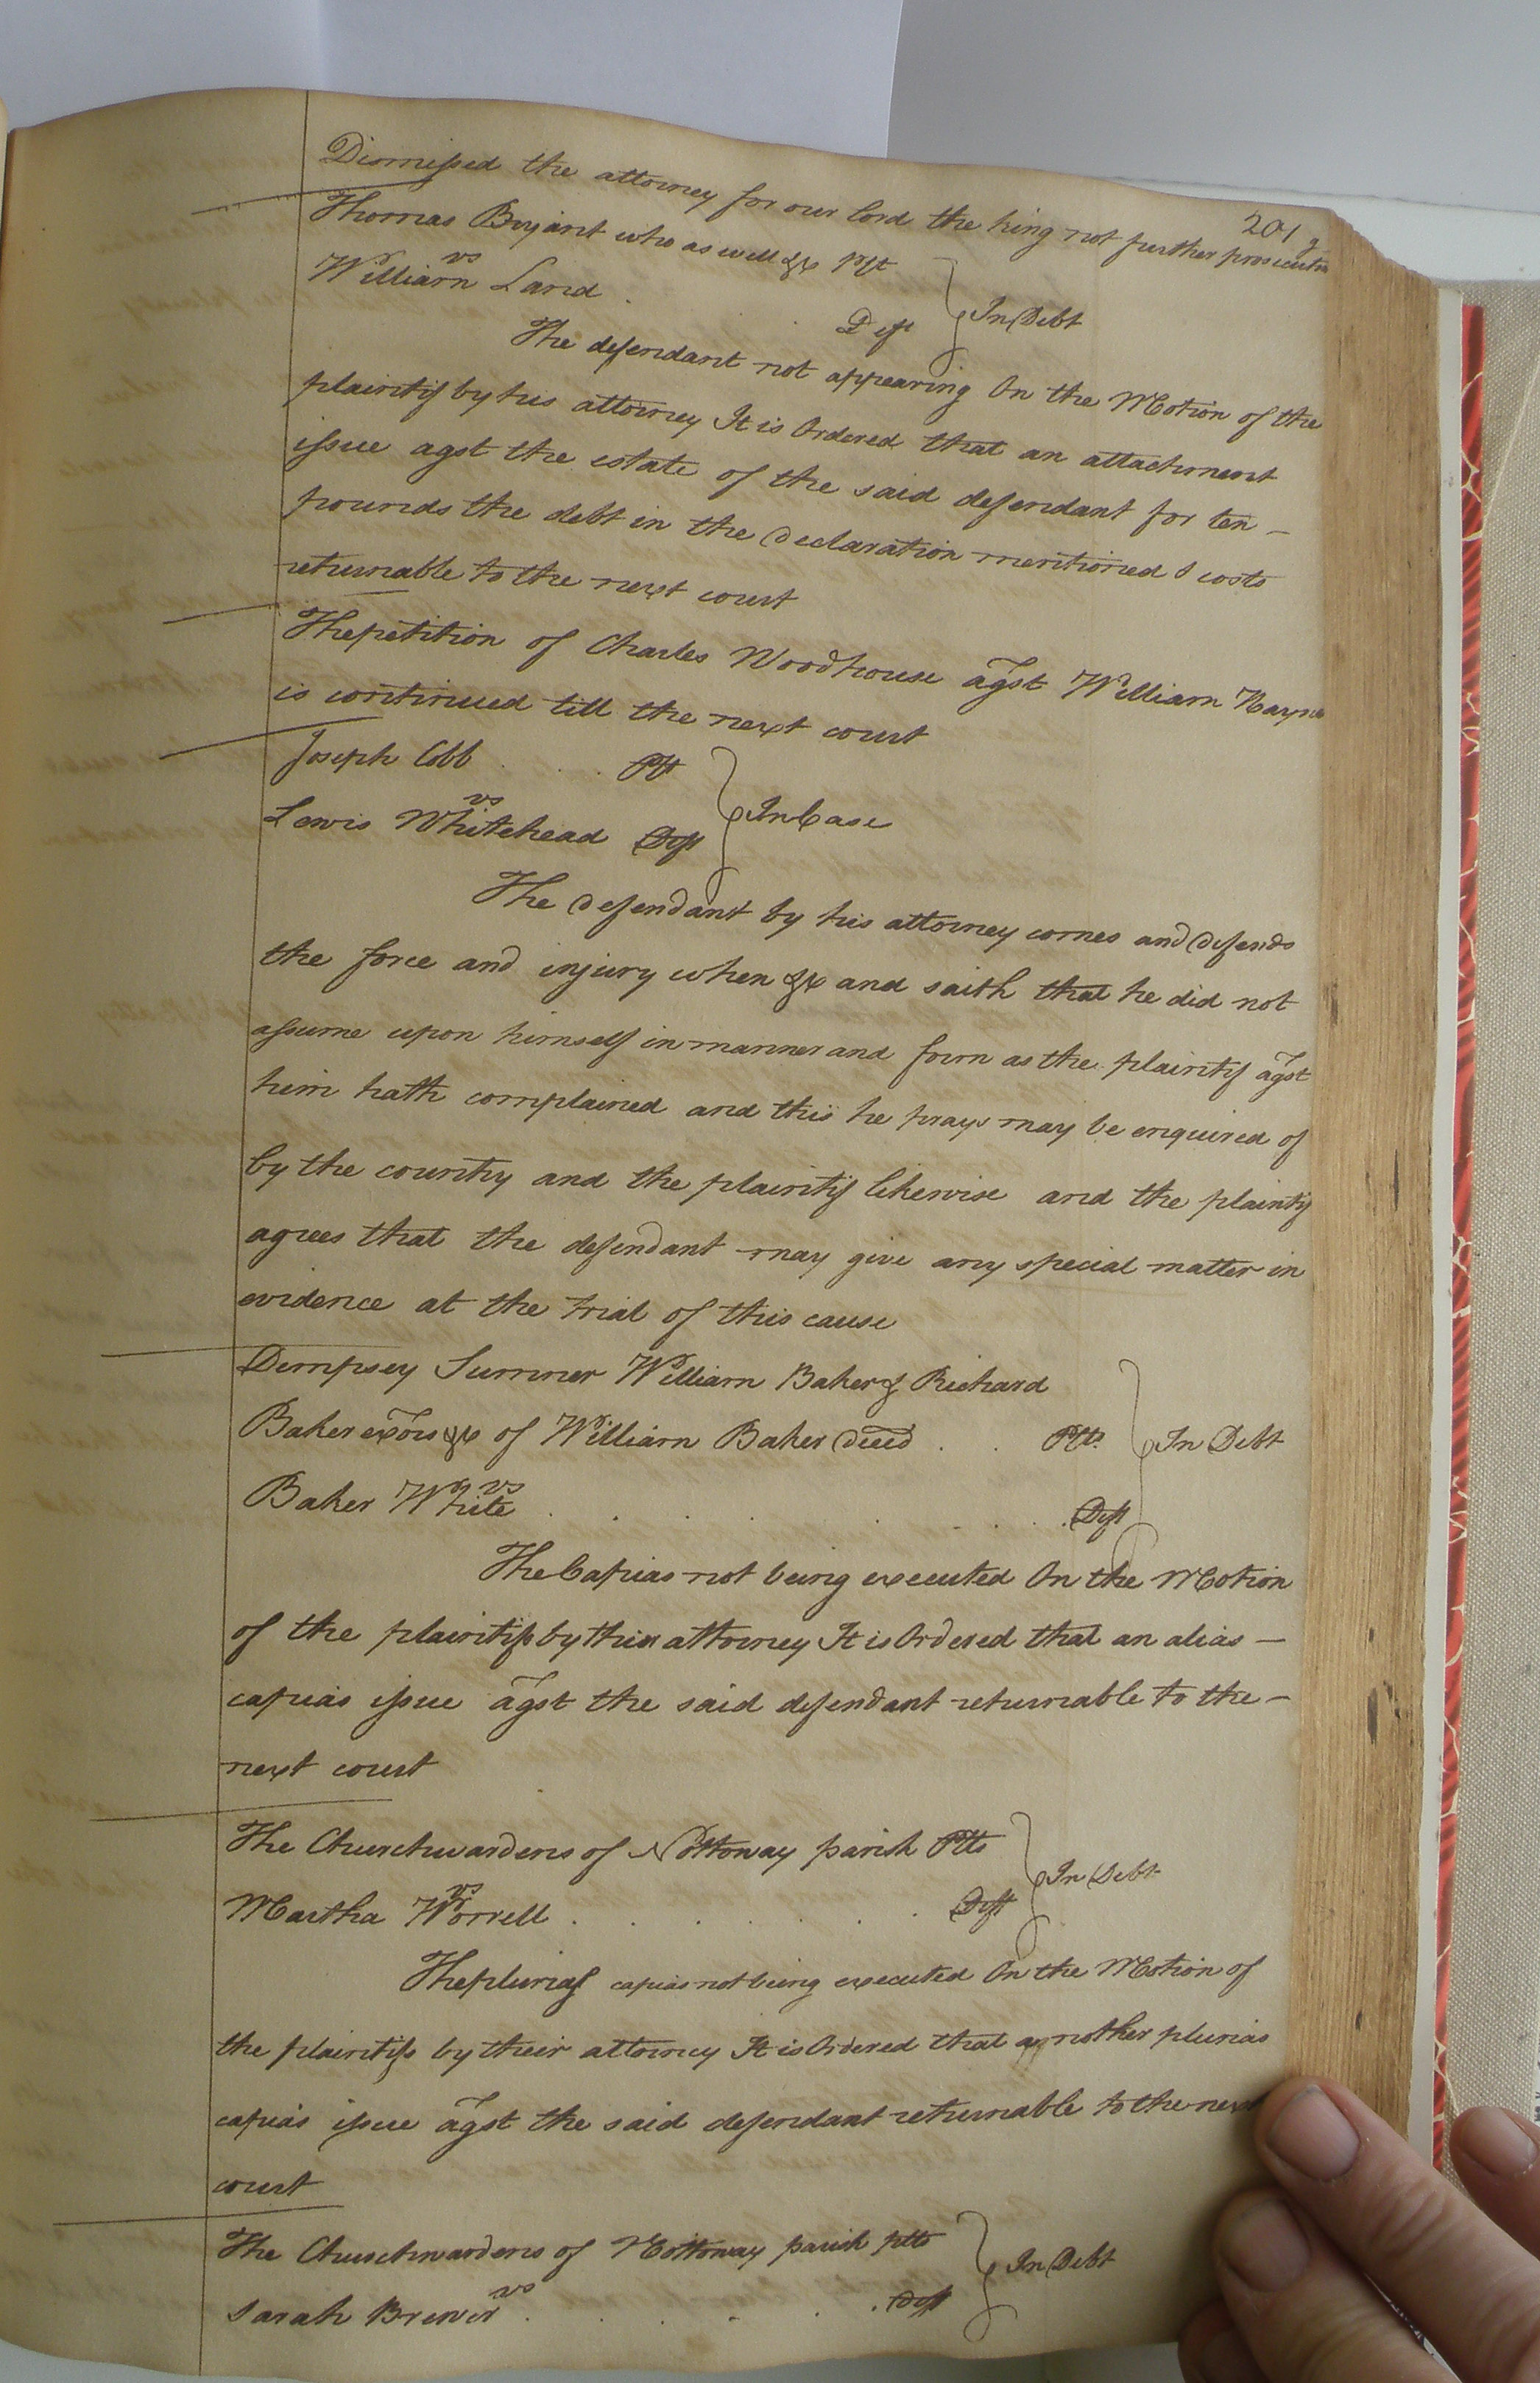 201
Dismissed the attorney for our lord the king not further prosecuting
Thomas Bryant who as well &c Plt
vs
William Land . . Deft } In Debt
The defendant not appearing On the Motion of the
plaintif by his attorney It is Ordered that an attachment
issue agst the estate of the said defendant for ten –
pounds the debt in the declaration mentioned & costs
returnable to the next court
The petition of Charles Woodhouse agst William
is continued till the next court
Joseph Cobb . . . Plt
vs } In Case
Lewis Whitehead Deft
The defendant by his attorney comes and defends
the force and injury when &c and saith that he did not
assume upon himself in manner and form as the plaintif agst
him hath complained and this he prays may be enquired of
by the country and the plaintif likewise and the plaintif
agrees that the defendant may give any special matter in
evidence at the trial of this cause
Dempsey Sumner William Baker & Richard
Baker exors &c of William Baker decd . . Plts } In Debt
vs
Baker White . . . . . . . . Deft
The Capias not being executed On the Motion
of the plaintifs by their attorney It is Ordered that an alias –
capias issue agst the said defendant returnable to the –
next court
The Churchwardens of Nottoway parish Plts
vs } In Debt
Martha Worrell . . . . . . . Deft
The plurias capias not being executed On the Motion of
the plaintifs by their attorney It is Ordered that another plurias
capias issue agst the said defendant returnable to the next
court
The Churchwardens of Nottoway parish plts
vs } In Debt
Sarah Brewer . . . . . Deft